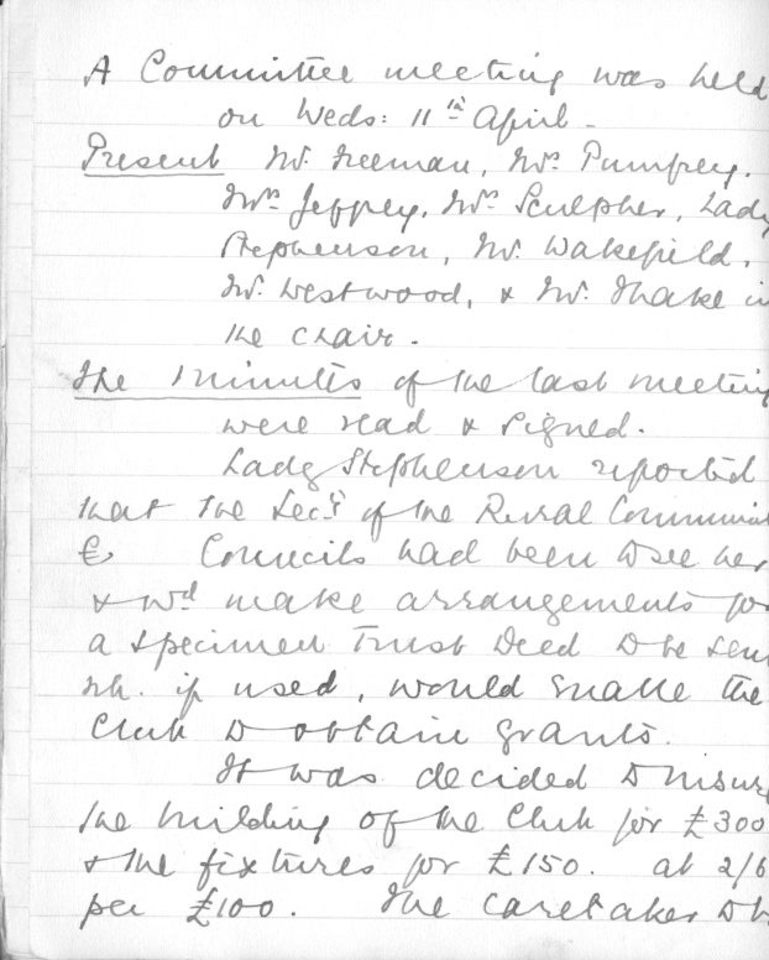 A Committee meeting was held
on Weds: 11th April -
Present Mr. Freeman, Mrs Pumfrey,
Mrs Jeffrey, Mrs Sculpher, Lady
Stephenson, Mr. Wakefield,
Mr. Westwood, & Mr. Thake in
the chair.
The minutes of the last meeting
were read & signed.
Lady Stephenson reported
that the Secy of the Rural Communit
Councils had been to see her
& wd make arrangements for
a specimen Trust Deed to be sen
wh. if used, would enable the
Club to obtain grants.
It was decided to insure
the building of the Club for £300
& the fixtures for £150. at 2/6
per £100. The caretaker to b